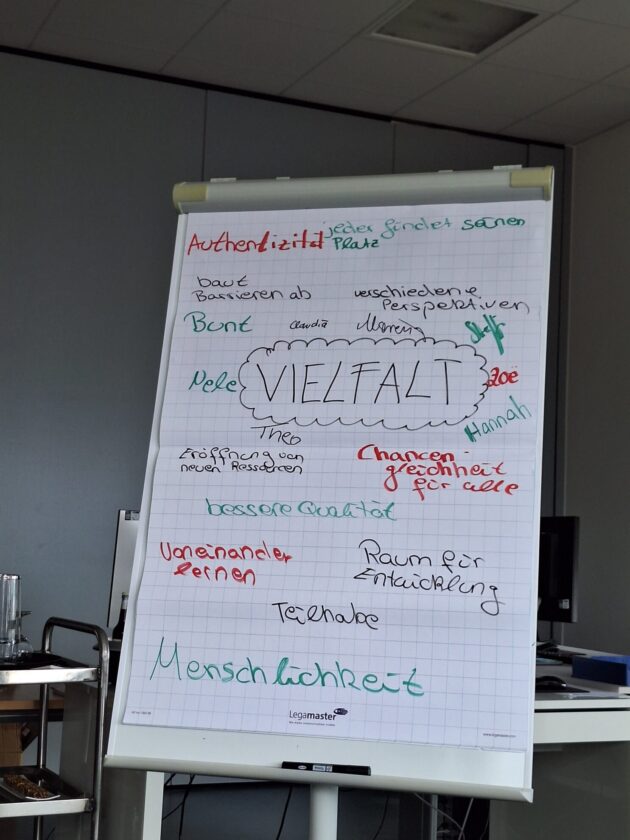 jeder findet seinen
Authentizität Platz
baut
Barrieren ab
verschiedene
Perspektiven
Bunt
Claudia
Nele
VIELFALT
Zoë
Hannah
Theo
Eröffnung von
neuen Ressourcen
Chancen-
gleichheit
für alle
bessere Qualität
Voneinander
lernen
Raum für
Entwicklung
Teilhabe
Menschlichkeit
Legamaster